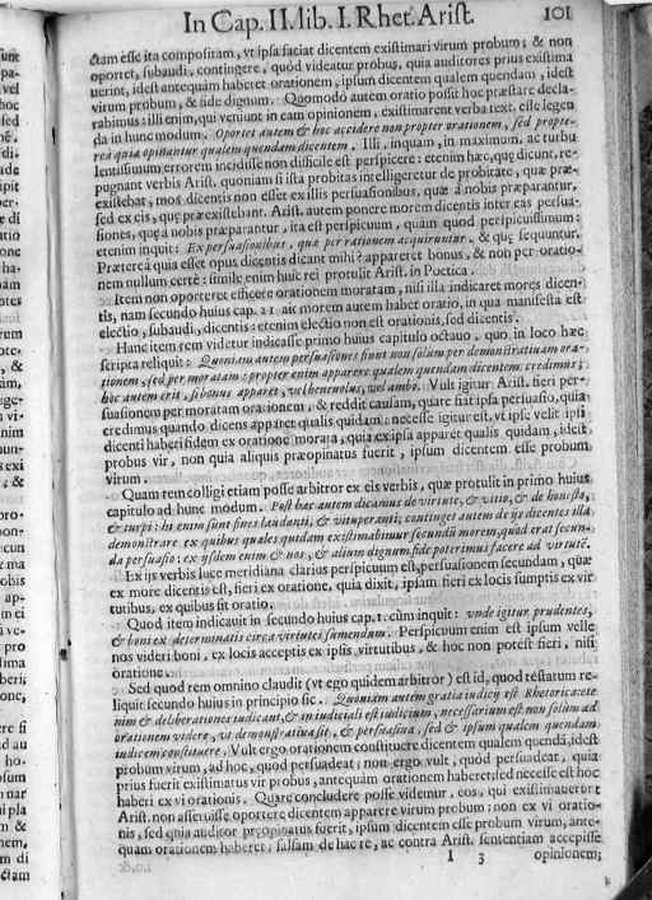 In Cap. II. lib. I. Rhet. Arist. 101
ctam esse ita compositam, vt ipsa faciat dicentem existimari virum probum; & non
oportet, subaudi, contingere, quòd videatur probus, quia auditores prius existima
uerint, idest antequàm haberet orationem, ipsum dicentem qualem quendam, idest
virum probum, & fide dignum. Quomodò autem oratio possit hoc præstare decla-
rabimus: illi enim, qui veniunt in eam opinionem, existimarent verba text. esse legen
da in hunc modum. Oportet autem & hoc accidere non propter orationem, sed propte-
rea quia opinantur qualem quendam dicentem. Illi, inquam, in maximum, ac turbu
lentissimum errorem incidisse non difficile est perspicere: etenim hæc, quę dicunt, re-
pugnant verbis Arist. quoniam si ista probitas intelligeretur de probitate, quæ præ-
existebat, mos dicentis non esset ex illis persuasionibus, quæ à nobis præparantur,
sed ex eis, quę præexistebant. Arist. autem ponere morem dicentis inter eas persua-
siones, quę à nobis præparantur, ita est perspicuum, quàm quod perspicuissimum:
etenim inquit: Ex persuasionibus, quæ per rationem acquiruntur. & quę sequuntur.
Prætereà quia esset opus dicentis dicat mihi? appareret bonus, & non per oratio-
nem nullum certè: simile enim huic rei protulit Arist. in Poetica.
Item non oporteret efficere orationem moratam, nisi illa indicaret mores dicen-
tis, nam secundo huius cap. 21. ait morem autem habet oratio, in qua manifesta est
electio, subaudi, dicentis: etenim electio non est orationis, sed dicentis.
Hanc item rem videtur indicasse primo huius capitulo octauo, quo in loco hæc
scripta reliquit: Quoniam autem persuasiones fiunt non solùm per demonstratiuam ora-
tionem, sed per moratam: propter enim apparere qualem quendam dicentem credimus;
hoc autem erit, si bonus apparet, vel beneuolus, vel ambo. Vult igitur Arist. fieri per-
suasionem per moratam orationem, & reddit causam, quare fiat ipsa persuasio, quia
credimus quando dicens apparet qualis quidam: necesse igitur est, vt ipse velit ipsi
dicenti haberi fidem ex oratione morata, quia ex ipsa apparet qualis quidam, idest
probus vir, non quia aliquis præopinatus fuerit, ipsum dicentem esse probum
virum.
Quam rem colligi etiam posse arbitror ex eis verbis, quæ protulit in primo huius
capitulo ad hunc modum. Post hæc autem dicamus de virtute, & vitio, & de honesto,
& turpi: hi enim sunt fines laudanti, & vituperanti; continget autem de ijs dicentes illa
demonstrare ex quibus quales quidam existimabimur secundū morem, quod erat secun-
da persuasio: ex ijsdem enim & nos, & alium dignum fide poterimus facere ad virtutē.
Ex ijs verbis luce meridiana clarius perspicuum est, persuasionem secundam, quæ
ex more dicentis est, fieri ex oratione, quia dixit, ipsam fieri ex locis sumptis ex vir
tutibus, ex quibus fit oratio.
Quod item indicauit in secundo huius cap. 1. cùm inquit: vnde igitur prudentes,
& boni ex determinatis circa virtutes sumendum. Perspicuum enim est ipsum velle
nos videri boni, ex locis acceptis ex ipsis virtutibus, & hoc non potest fieri, nisi
oratione.
Sed quod rem omnino claudit (vt ego quidem arbitror) est id, quod testatum re-
liquit secundo huius in principio sic. Quoniam autem gratia iudicij est Rhetorica: ete
nim & deliberationes iudicant, & in iudiciali est iudicium, necessarium est non solùm ad
orationem videre, vt demonstratiua sit, & persuasiua, sed & ipsum qualem quendam
iudicem constituere. Vult ergo orationem constituere dicentem qualem quendā, idest
probum virum, ad hoc, quod persuadeat; non ergo vult, quòd persuadeat, quia
prius fuerit existimatus vir probus, antequàm orationem haberet; sed necesse est hoc
haberi ex vi orationis. Quare concludere posse videmur, eos, qui existimauerint
Arist. non asseruisse oportere dicentem apparere virum probum: non ex vi oratio-
nis, sed quia auditor pręopinatus fuerit, ipsum dicentem esse probum virum, ante-
quàm orationem haberet, falsam de hac re, ac contra Arist. sententiam accepisse
I 3 opinionem;